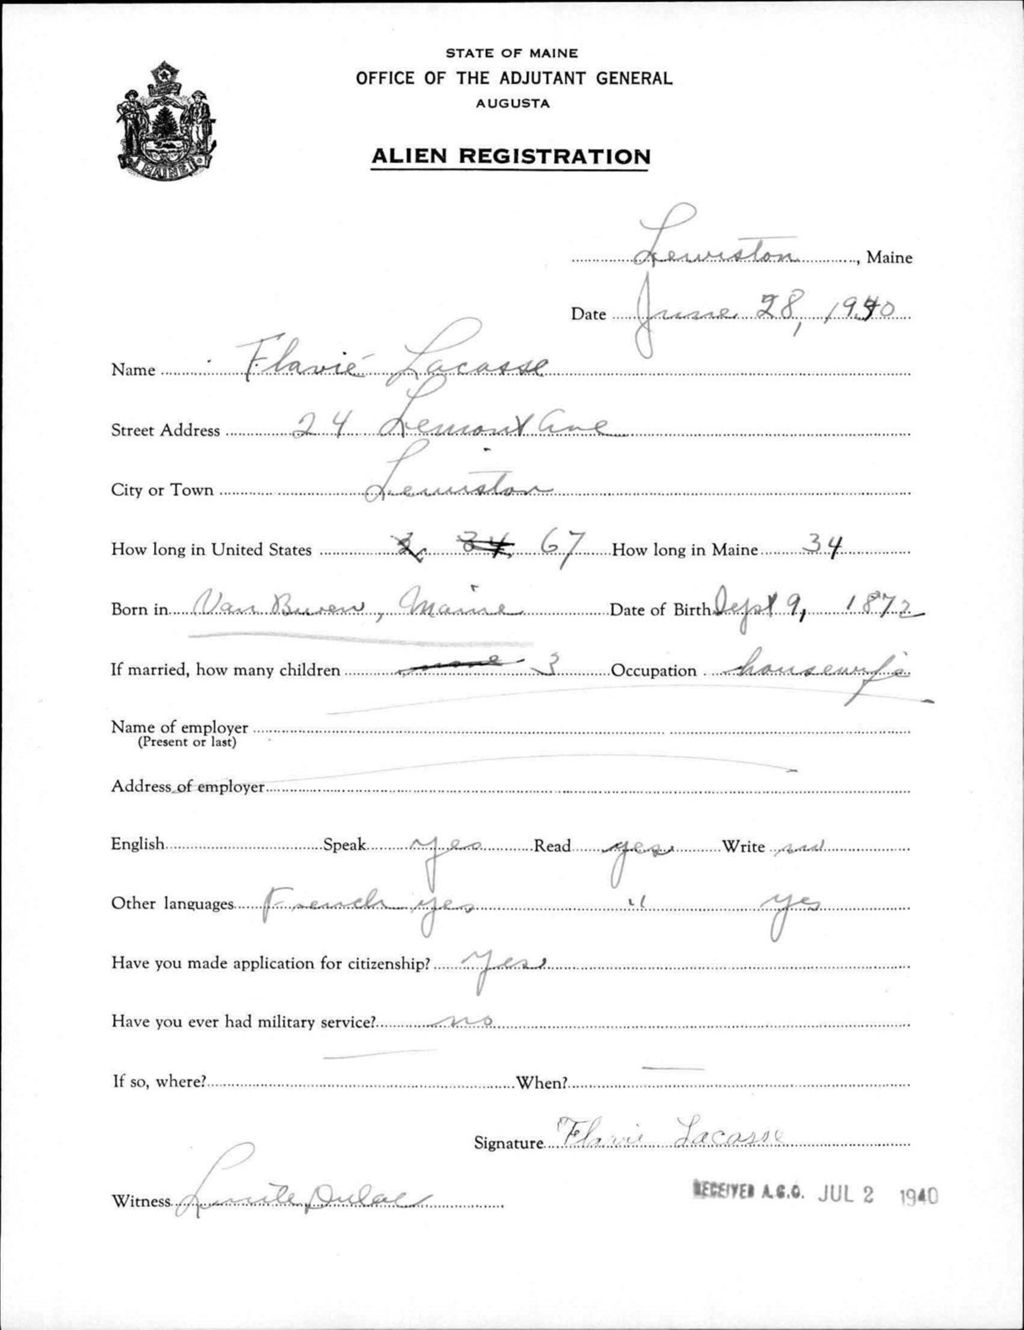 STATE OF MAINE
OFFICE OF THE ADJUTANT GENERAL
AUGUSTA
ALIEN REGISTRATION
MAINE
Lewiston, Maine
Date June 28, 1940
Name Flavié Lacasse
Street Address 24 Lemont Ave
City or Town Lewiston
How long in United States 67 How long in Maine 34
Born in Van Buren, Maine Date of Birth Sept 9, 1872
If married, how many children none 3 Occupation housewife
Name of employer
(Present or last)
Address of employer
English Speak yes Read yes Write no
Other languages French yes " yes
Have you made application for citizenship? Yes
Have you ever had military service? no
If so, where? When?
Signature Flavie Lacasse
Witness Dulac
RECEIVED A.G.O. JUL 2 1940